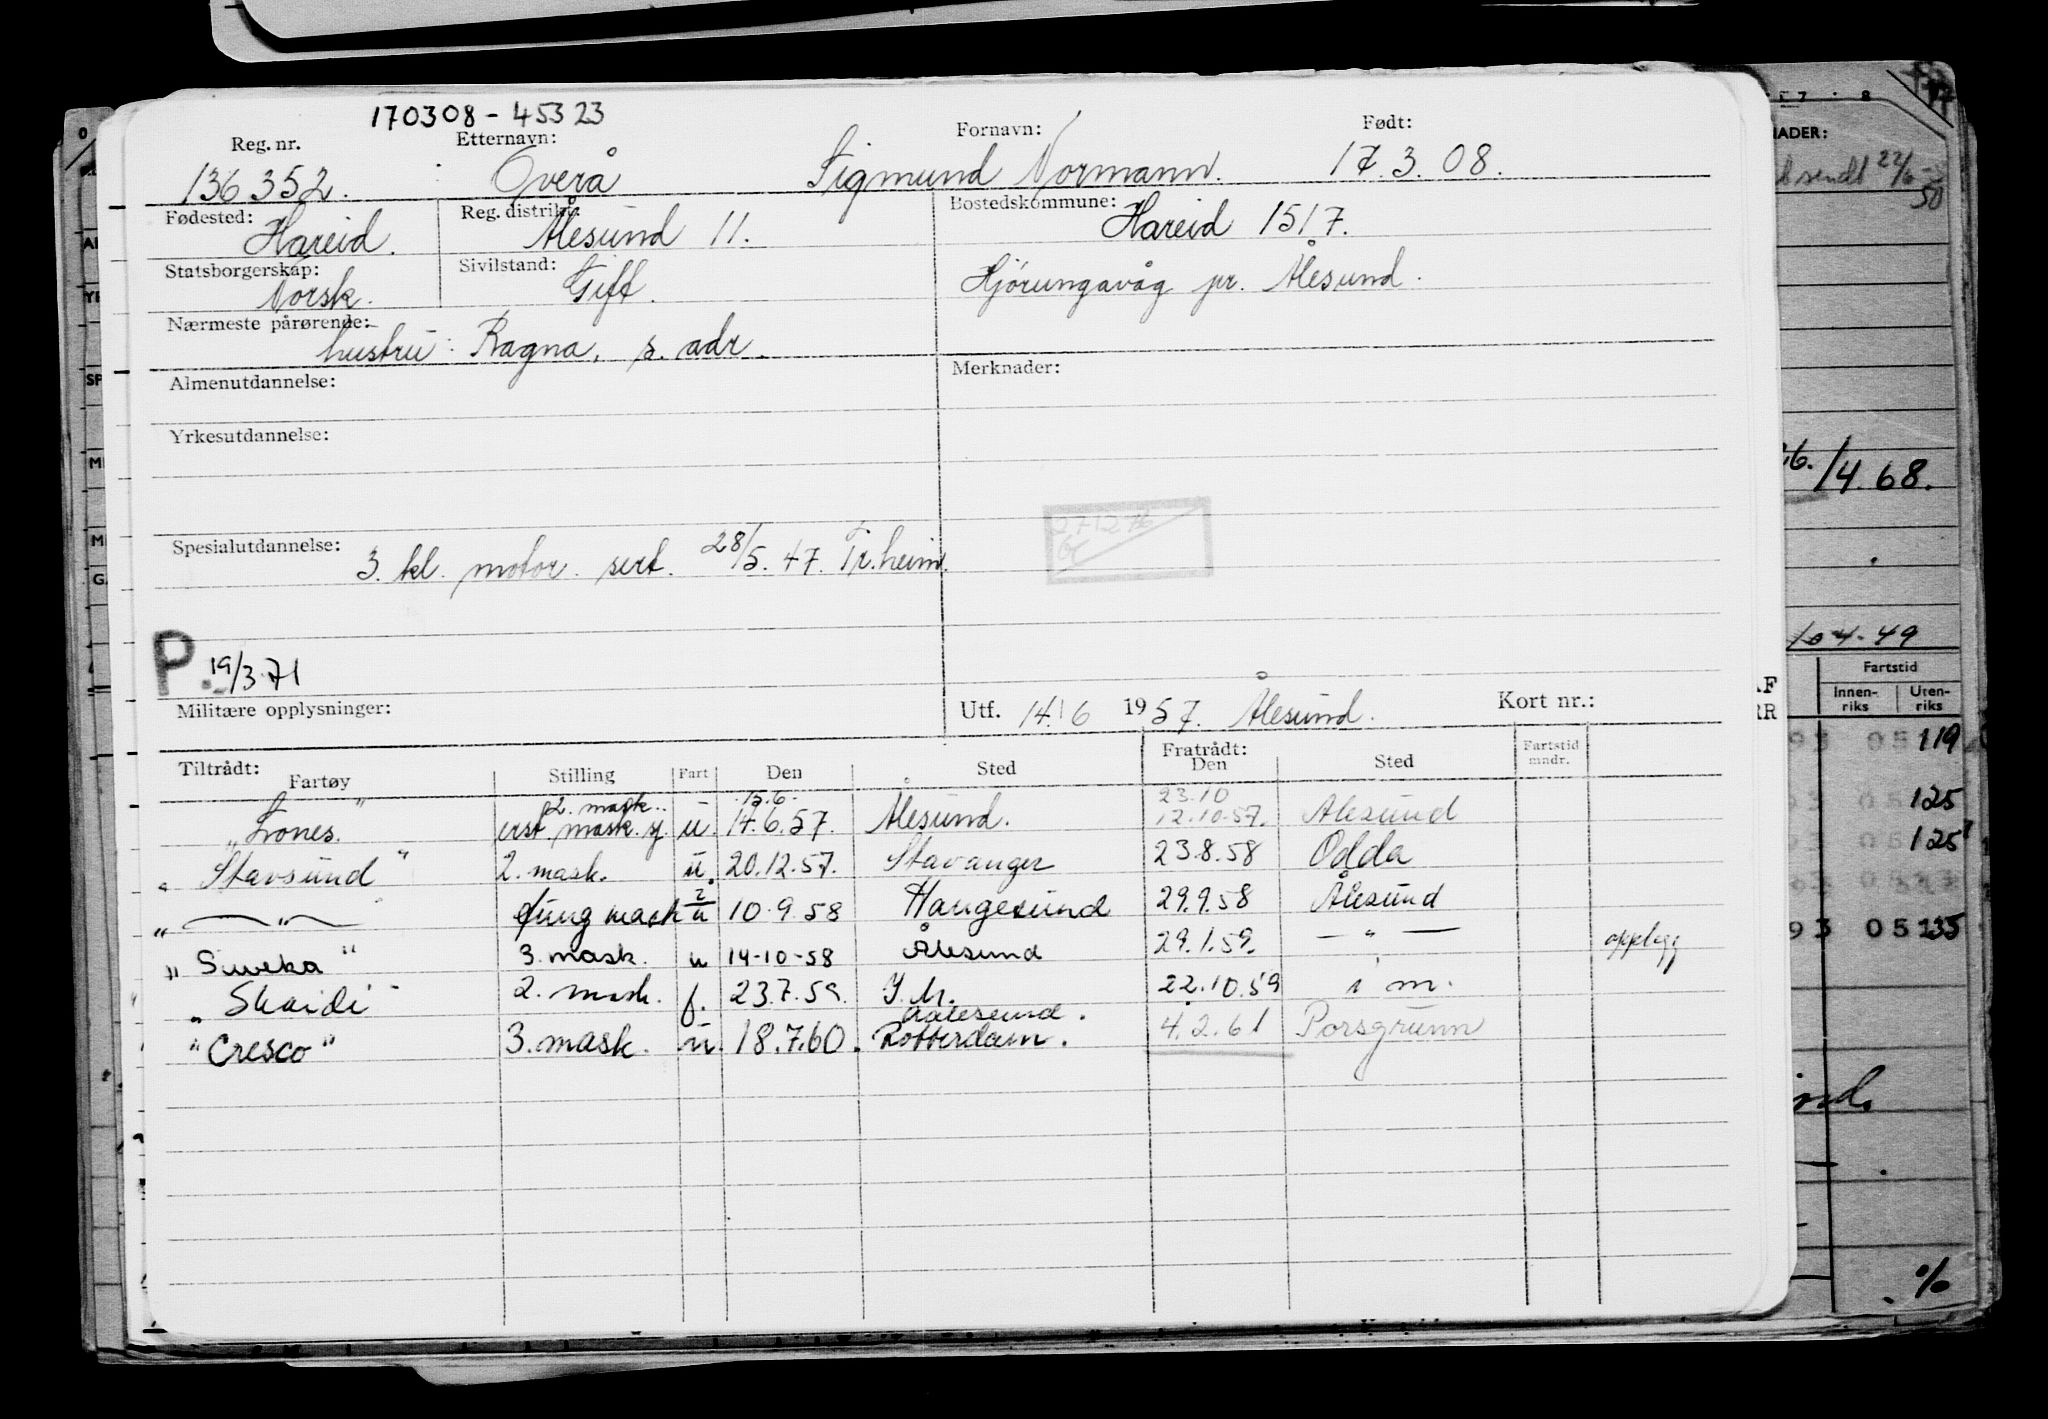 170308 - 45323
Reg. nr. Etternavn: Fornavn: Født:
136352. Overå Sigmund Normann. 17.3.08.
Fødested: Reg. distrikt: Bostedskommune:
Hareid. Ålesund 11. Hareid 1517.
Statsborgerskap: Sivilstand:
Norsk. Gift. Hjørungavåg pr. Ålesund.
Nærmeste pårørende:
hustru: Ragna, s. adr.
Almenutdannelse: Merknader:
Yrkesutdannelse:
27 12 76
Spesialutdannelse:
3. kl. motor. sert. 28/5.47. Tr.heim.
P. 19/3.71
Militære opplysninger: Utf. 14/6 1957. Ålesund. Kort nr.:
Tiltrådt: Fratrådt:
Fartøy Stilling Fart Den Sted Den Sted Fartstid mndr.
2. mask. 15.6. 23.10
"Trones." mask. u. 14.6.57. Ålesund. 12.10.57. Ålesund
"Stavsund" 2. mask. u. 20.12.57. Stavanger 23.8.58 Odda
" — " — mask 2/u 10.9.58 Haugesund 29.9.58 Ålesund
"Suveka" 3. mask. u 14-10-58 Ålesund 29.1.59. — " — opplegg
"Skaidi" 2. mask. f. 23.7.59. I.M. 22.10.59 i m.
Aalesund.
"Cresco" 3. mask. u. 18.7.60. Rotterdam. 4.2.61 Porsgrunn
NADER:
sendt 22/6 - 50
26./4.68.
10 4-49
Fartstid
Innen-riks Uten-riks
93 05 119
125
125
93 05 135